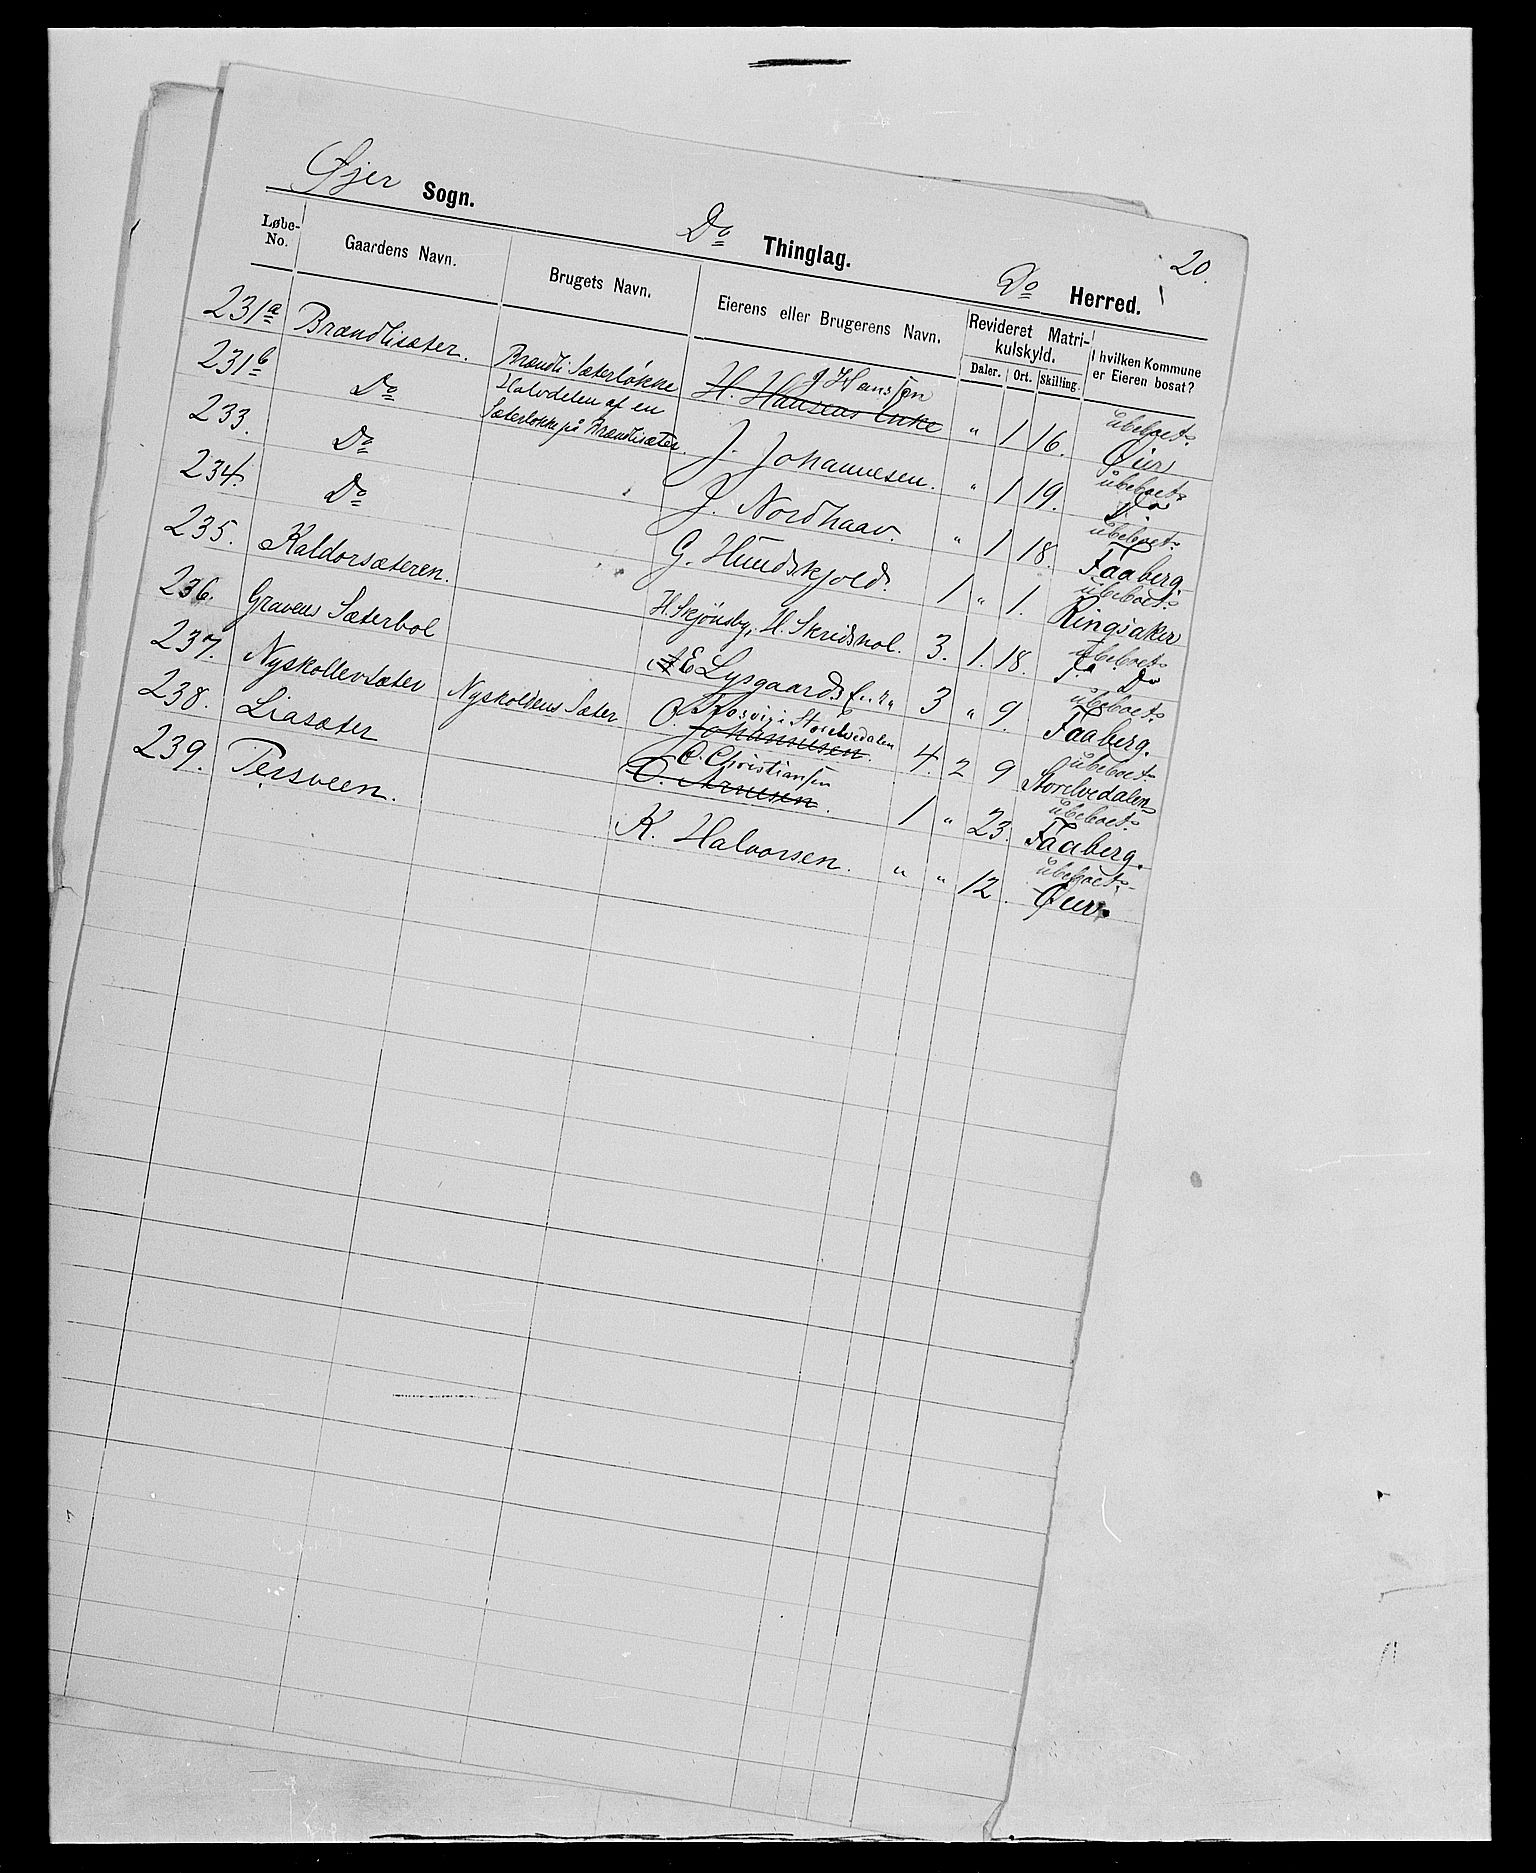 Øjer Sogn. Do Thinglag. Do Herred. 20.
Løbe-No. Gaardens Navn. Brugets Navn. Eierens eller Brugerens Navn. Revideret Matrikulskyld. I hvilken Kommune er Eieren bosat?
Daler. Ort. Skilling.
231a Brændlisæter. Brændli Sæterløkke J Hansen H. Hansens Enke " 1 16. ubeboet. Øier
231b Do Halvdelen af en Sæterløkke på Brændlisæter. J. Johannesen. " 1 19. ubeboet. Do
233. Do J. Nordhaav. " 1 18. ubeboet. Faaberg.
234. Do G. Hundskjold. 1 " 1. ubeboet. Ringsaker
235. Kaldorsæteren. H. Skjönsby, H. Skridskol. 3. 1. 18. ubeboet. Do
236. Gravens Sæterbol E Lysgaards 3 " 9. ubeboet. Faaberg.
237. Nyskollensæter Nyskollens Sæter O. Rosvig i Storelvedalen Johannesen. 4. 2 9 ubeboet. Storelvedalen
238. Liasæter O. Christiansen O. Arnesen. 1 " 23. ubeboet. Faaberg.
239. Persveen. K. Halvorsen. " " 12. ubeboet. Øier.